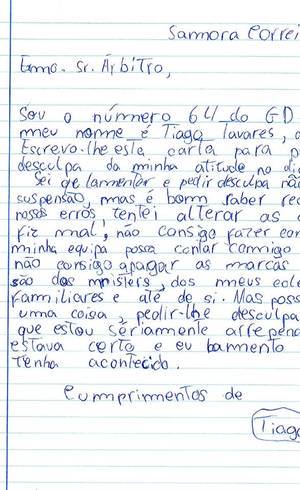 Samora Correi
Exmo. Sr. Árbitro,
Sou o número 64 do GD
meu nome é Tiago Tavares, 
Escrevo-lhe esta carta para p
desculpa da minha atitude no di
Sei que lamentar e pedir desculpa nã
suspensão, mas é bom saber rec
nossos erros, tentei alterar as c
fiz mal, não consigo fazer com
minha equipa possa contar comigo
não consigo apagar as marcas
são dos misters, dos meus cole
Familiares e até de si. Mas poss
uma coisa, pedir-lhe desculpa
que estou sériamente arrepen
estava certo e eu lamento
tenha acontecido.
Cumprimentos de
Tiago